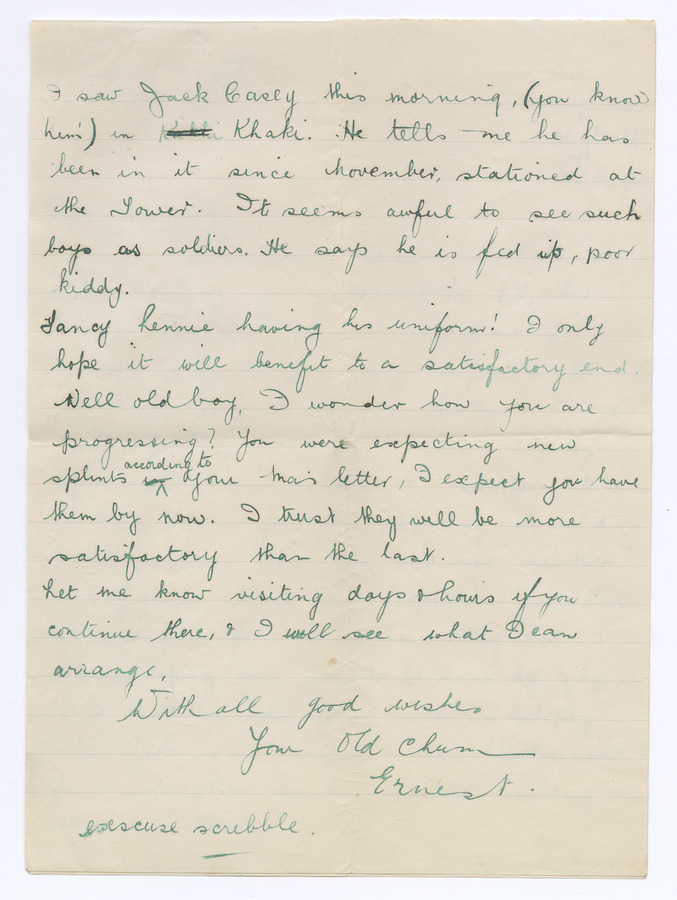 I saw Jack Casey this morning, (you know
him) in Khaki. He tells me he has
been in it since November, stationed at
the Tower. It seems awful to see such
boys as soldiers. He says he is fed up, poor
kiddy.
Fancy Lennie having his uniform! I only
hope it will benefit to a satisfactory end.
Well old boy, I wonder how you are
progressing? You were expecting new
splints according to your Ma's letter, I expect you have
them by now. I trust they will be more
satisfactory than the last.
Let me know visiting days & hours if you
continue there, & I will see what I can
arrange,
With all good wishes
Your Old Chum
Ernest.
exscuse scribble.